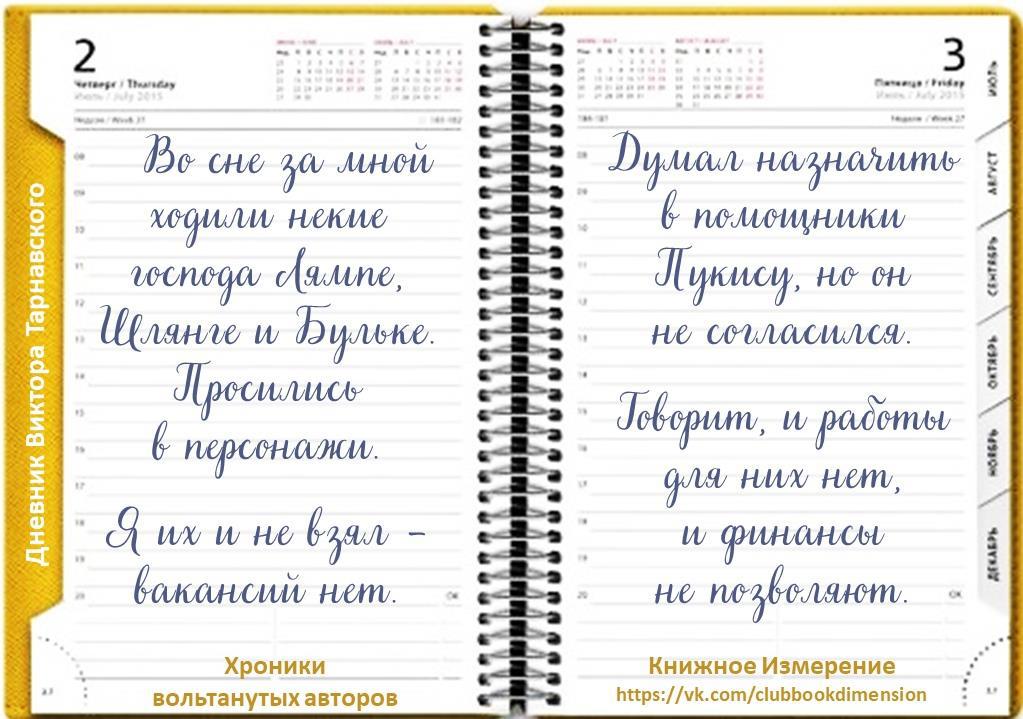 Дневник Виктора Тарнавского
2
Четверг / Thursday
Июль / July 2015
Неделя / Week 27
Во сне за мной
ходили некие
господа Лямпе,
Шлянге и Бульке.
Просились
в персонажи.
Я их и не взял –
вакансий нет.
Хроники
вольтанутых авторов
3
Пятница / Friday
Июль / July 2015
Неделя / Week 27
Думал назначить
в помощники
Пукису, но он
не согласился.
Говорит, и работы
для них нет,
и финансы
не позволяют.
Книжное Измерение
https://vk.com/clubbookdimension
ИЮЛЬ
АВГУСТ
СЕНТЯБРЬ
ОКТЯБРЬ
НОЯБРЬ
ДЕКАБРЬ